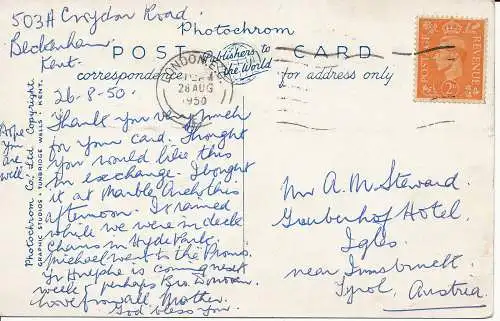 503A Croydon Road.
Beckenham.
Kent.
Photochrom
POST CARD
Publishers to
the World
correspondence
for address only
LONDON
28 AUG
1950
POSTAGE
REVENUE
2D
Photochrom Co. Ltd. Copyright.
GRAPHIC STUDIOS · TUNBRIDGE WELLS · KENT.
26-8-50.
Hope
you
are
well.
Thank you very much
for your card. Thought
you would like this
in exchange. I bought
it at Marble Arch this
afternoon. It rained
while we were in deck
chairs in Hyde Park.
Michael went to the Proms.
is coming next
week & perhaps
Love from all, Mother.
God bless you.
Mr A. M. Steward.
Hotel,
Igls
near Innsbruck
Tyrol, Austria.